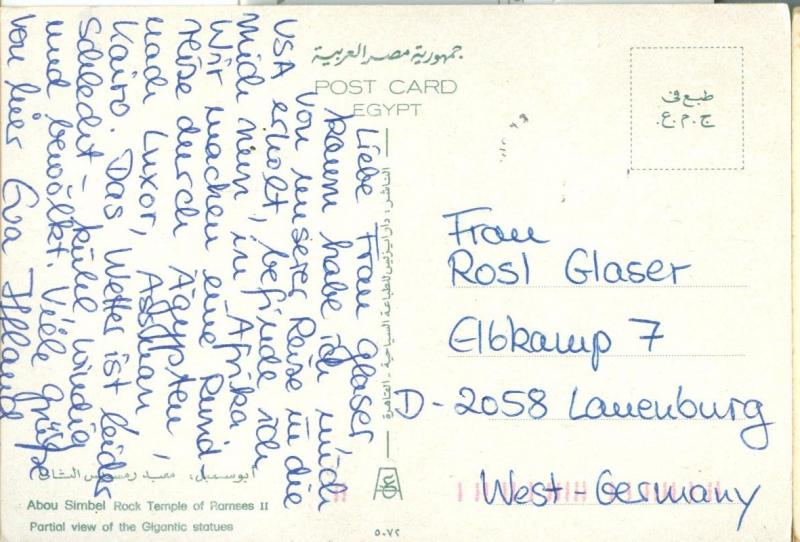 جمهورية مصر العربية
POST CARD
EGYPT
طبع فى
ج.م.ع.
Liebe Frau Glaser
kaum habe ich mich
von unserer Reise in die
USA erholt, befinde ich
mich nun in Afrika.
Wir machen eine Rund
reise durch Ägypten,
nach Luxor, Assuan,
Kairo. Das Wetter ist leider
schlecht – kühl windig
und bewölkt. Viele Grüße
von hier Eva
الناشر: دار ايزيس للطباعة السياحية - القاهرة
Frau
Rosl Glaser
Elbkamp 7
D-2058 Lauenburg
West-Germany
ابوسمبل، معبد رمسيس الثانى
Abou Simbel Rock Temple of Ramses II
Partial view of the Gigantic statues
٥٠٧٢